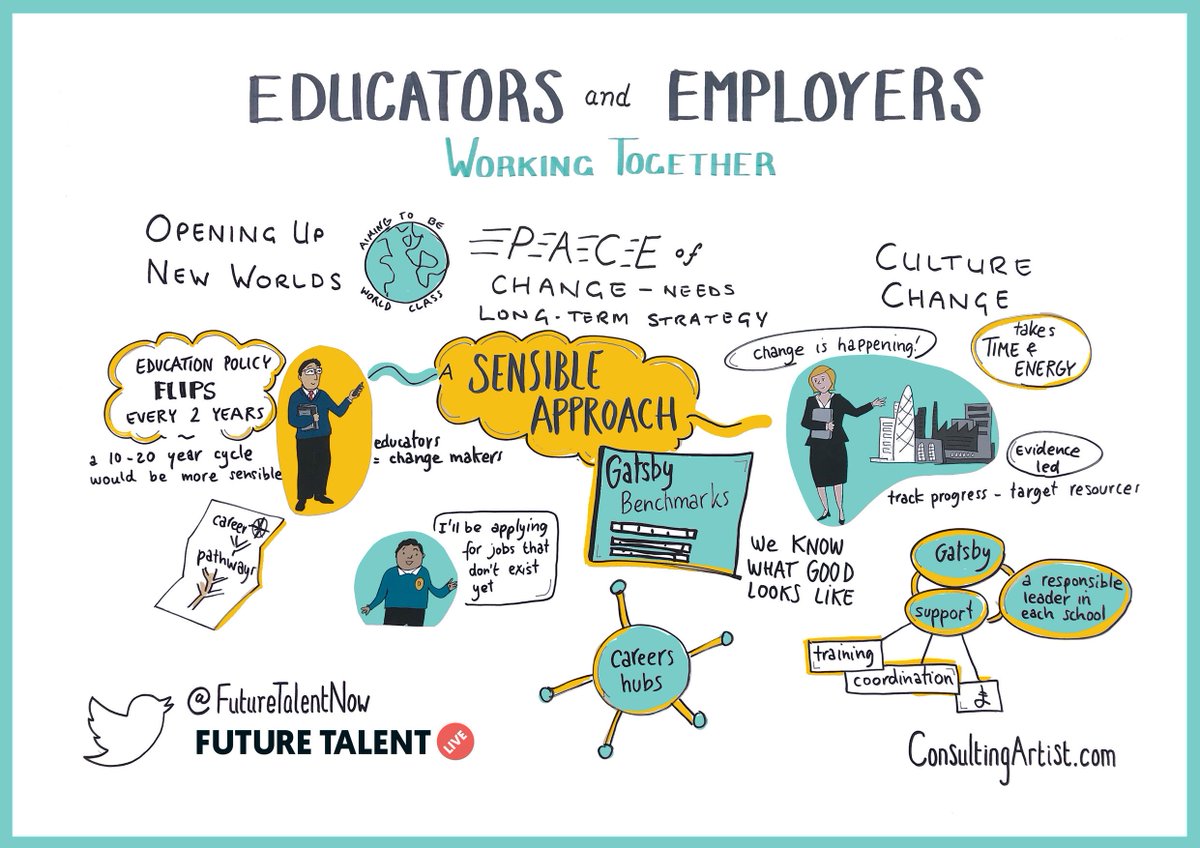 EDUCATORS and EMPLOYERS
WORKING TOGETHER
OPENING UP
NEW WORLDS
AIMING TO BE
WORLD CLASS
PACE of
CHANGE - NEEDS
LONG-TERM STRATEGY
CULTURE
CHANGE
EDUCATION POLICY
FLIPS
EVERY 2 YEARS
~
a 10-20 year cycle
would be more sensible
educators
= change makers
A SENSIBLE
APPROACH
change is happening!
takes
TIME &
ENERGY
Evidence
led
track progress - target resources
career
pathways
I'll be applying
for jobs that
don't exist
yet
Gatsby
Benchmarks
WE KNOW
WHAT GOOD
LOOKS LIKE
Careers
hubs
Gatsby
support
a responsible
leader in
each school
training
coordination
£
@FutureTalentNow
FUTURE TALENT LIVE
ConsultingArtist.com